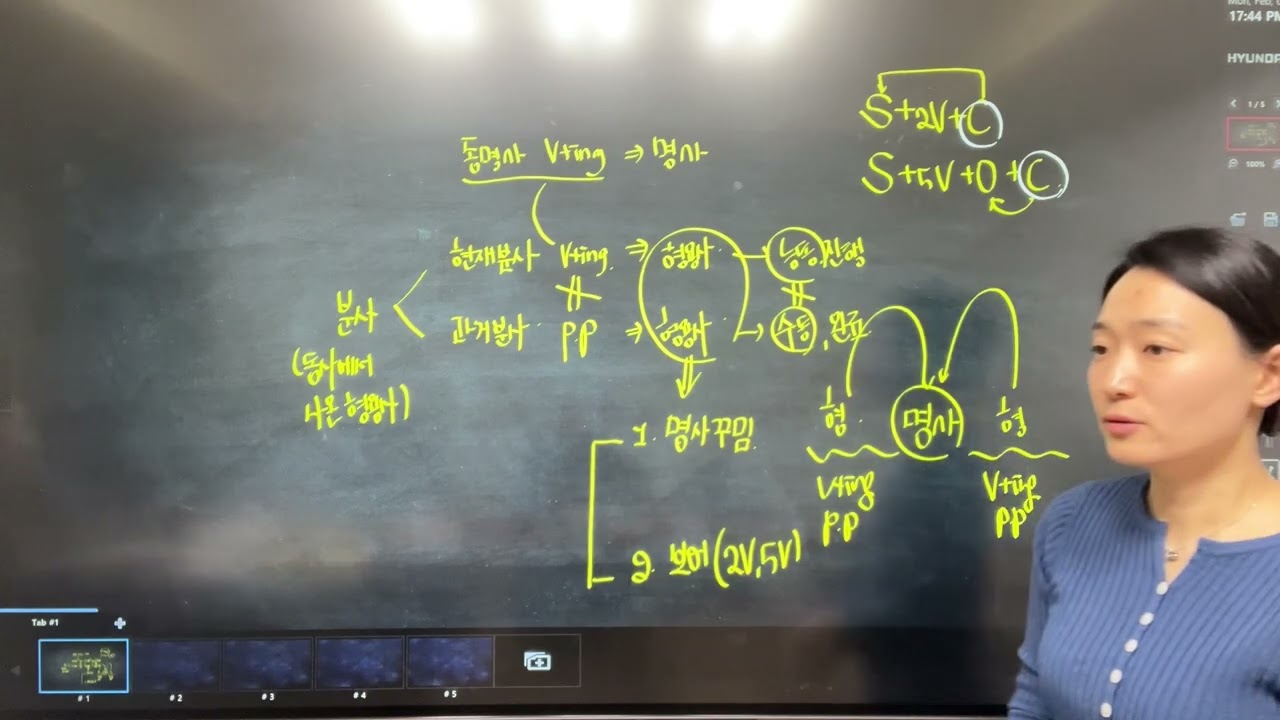 17:44 PM
HYUNDAI
1/5
100%
S+2V+C
S+5V+O+C
동명사 V+ing ⇒ 명사
현재분사 V+ing ⇒ 형용사 능동, 진행
분사
과거분사 P.P ⇒ 형용사 수동, 완료
(동사에서
나온 형용사)
1. 명사꾸밈 형 명사 형
V+ing V+ing
P.P P.P
2. 보어(2V, 5V)
Tab #1
#1 #2 #3 #4 #5